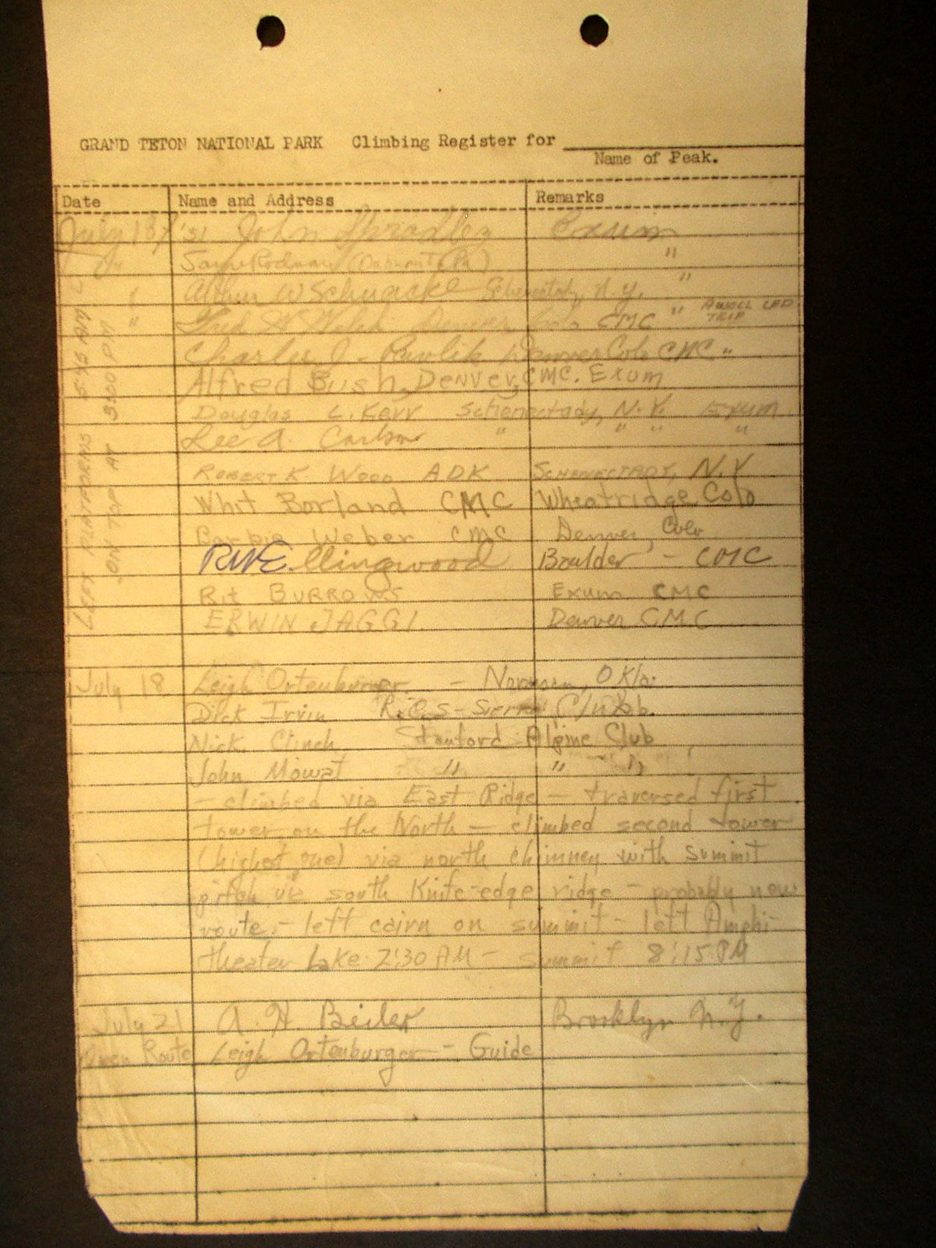 GRAND TETON NATIONAL PARK Climbing Register for
Name of Peak.
Date Name and Address Remarks
July 18, '51 John Spradley Exum
" "
Arthur W Schnacke Schenectady, N.Y. "
" Fred H Denver Colo CMC " A WELL LED
TRIP
Charles J. Pavlik Denver Colo CMC "
Alfred Bush, Denver, CMC. Exum
Douglas C. Kerr Schenectady, N.Y. Exum
Lee A. " " " "
ROBERT K. WOOD ADK SCHENECTADY, N.Y
Whit Borland CMC Wheatridge Colo
Barbie Weber CMC Denver, Colo
RWEllingwood Boulder - CMC
Rit BURROWS EXUM CMC
ERWIN JAGGI Denver CMC
LEFT PLATFORMS 5:45 AM
ON TOP AT 3:00 PM
July 18 Leigh Ortenburger - Norman, Okla.
Dick Irvin R.C.S - Sierra Club.
Nick Clinch Stanford Alpine Club
John Mowat " " "
- climbed via East Ridge - traversed first
tower on the North - climbed second tower
(highest one) via north chimney with summit
pitch via south Knife-edge ridge - probably new
route - left cairn on summit - left Amphi-
theater Lake 2:30 AM - summit 8:15 PM
July 21 A. H Beiler Brooklyn N.Y.
Owen Route Leigh Ortenburger - Guide